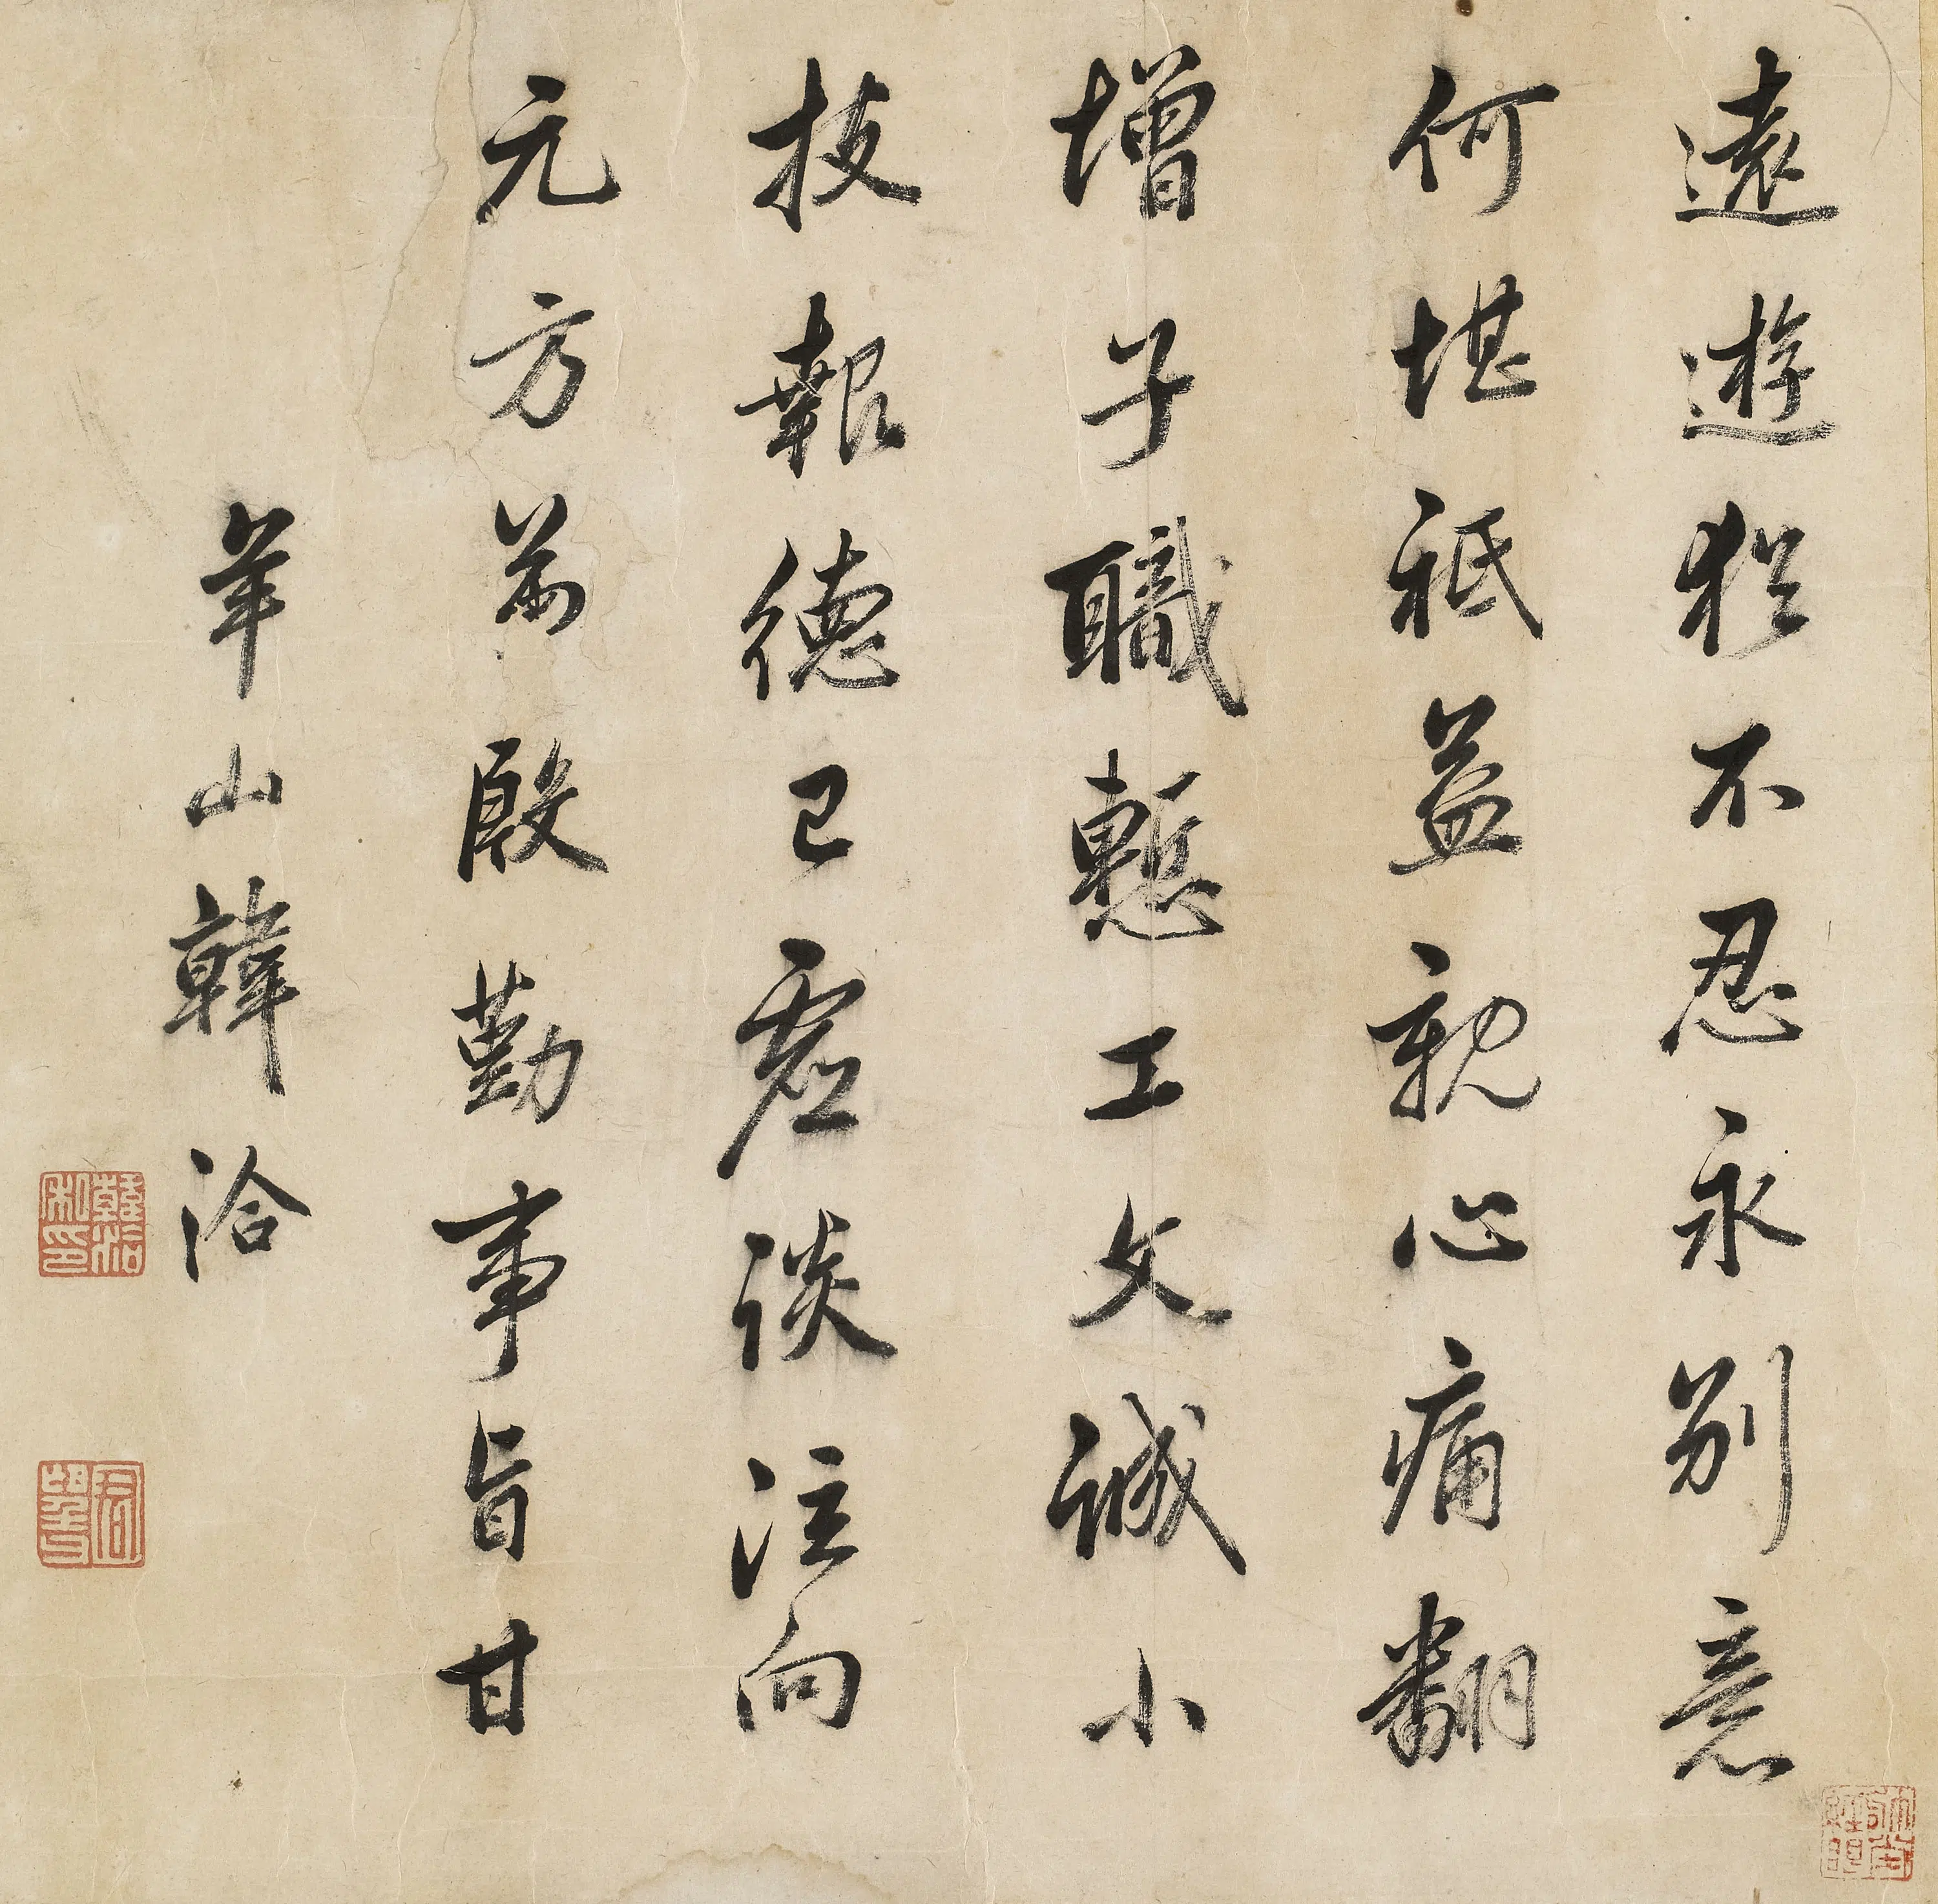 遠遊猶不忍永別意
何堪祇益親心痛翻
增子職慙工文誠小
技報德已虛談注向
元方若殷勤事旨甘
羊山韓洽
韓洽私印
君望